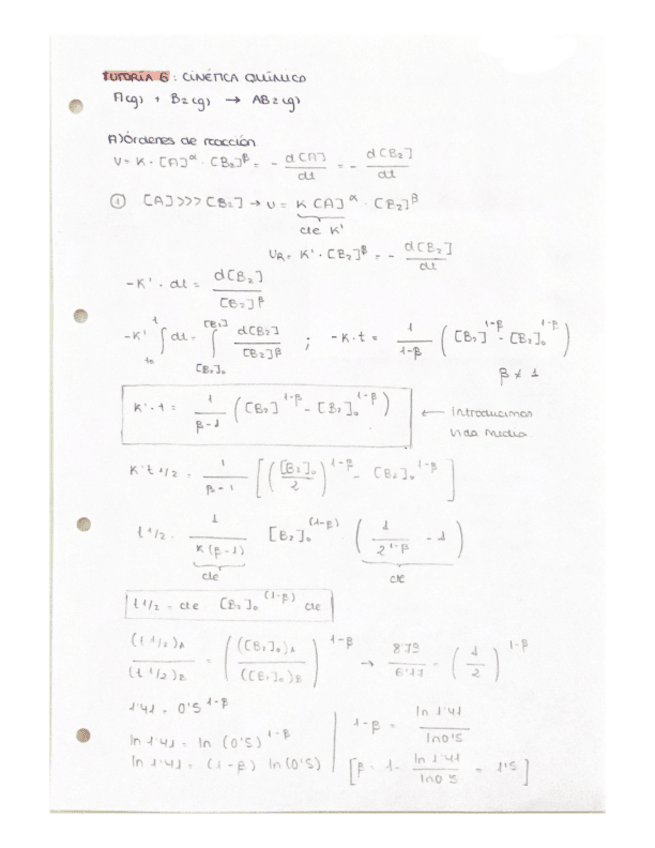 TUTORÍA 6: CINÉTICA QUÍMICA
A(g) + B2(g) → AB2(g)
A) Órdenes de reacción
V = K · [A]^α · [B2]^β = - d[A]/dt = - d[B2]/dt
① [A] >>> [B2] → v = K [A]^α · [B2]^β
cte K'
VR = K' · [B2]^β = - d[B2]/dt
-K' · dt = d[B2]/[B2]^β
-K' ∫_{t0}^{t} dt = ∫_{[B2]0}^{[B2]} d[B2]/[B2]^β ; -K·t = 1/(1-β) ([B2]^{1-β} - [B2]0^{1-β})
β ≠ 1
K' · t = 1/(β-1) ([B2]^{1-β} - [B2]0^{1-β}) ← Introducimos
vida media
K' t1/2 = 1/(β-1) [([B2]0/2)^{1-β} - [B2]0^{1-β}]
t1/2 = 1/(K(β-1)) [B2]0^{(1-β)} (1/2^{1-β} - 1)
cte cte
t1/2 = cte [B2]0^{(1-β)} cte
(t1/2)A/(t1/2)B = (([B2]0)A/([B2]0)B)^{1-β} → 8'72/6'17 = (1/2)^{1-β}
1'41 = 0'5^{1-β}
ln 1'41 = ln (0'5)^{1-β}
ln 1'41 = (1-β) ln (0'5)
1-β = ln 1'41/ln 0'5
[β = 1 - ln 1'41/ln 0'5 = 1'5]